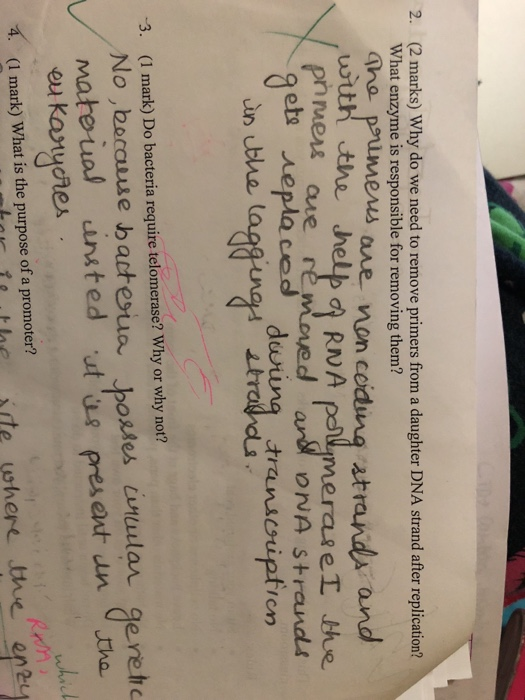 2. (2 marks) Why do we need to remove primers from a daughter DNA strand after replication?
What enzyme is responsible for removing them?
The primers are non coding strands and
with the help of RNA polymerase I the
primers are removed and DNA strands
gets replaced during transcription
in the laggings strands.
3. (1 mark) Do bacteria require telomerase? Why or why not?
No, because bacteria posses circular genetic
material insted it is present in the
eukaryotes.
4. (1 mark) What is the purpose of a promoter?
is the site where the enzy
RNA
which